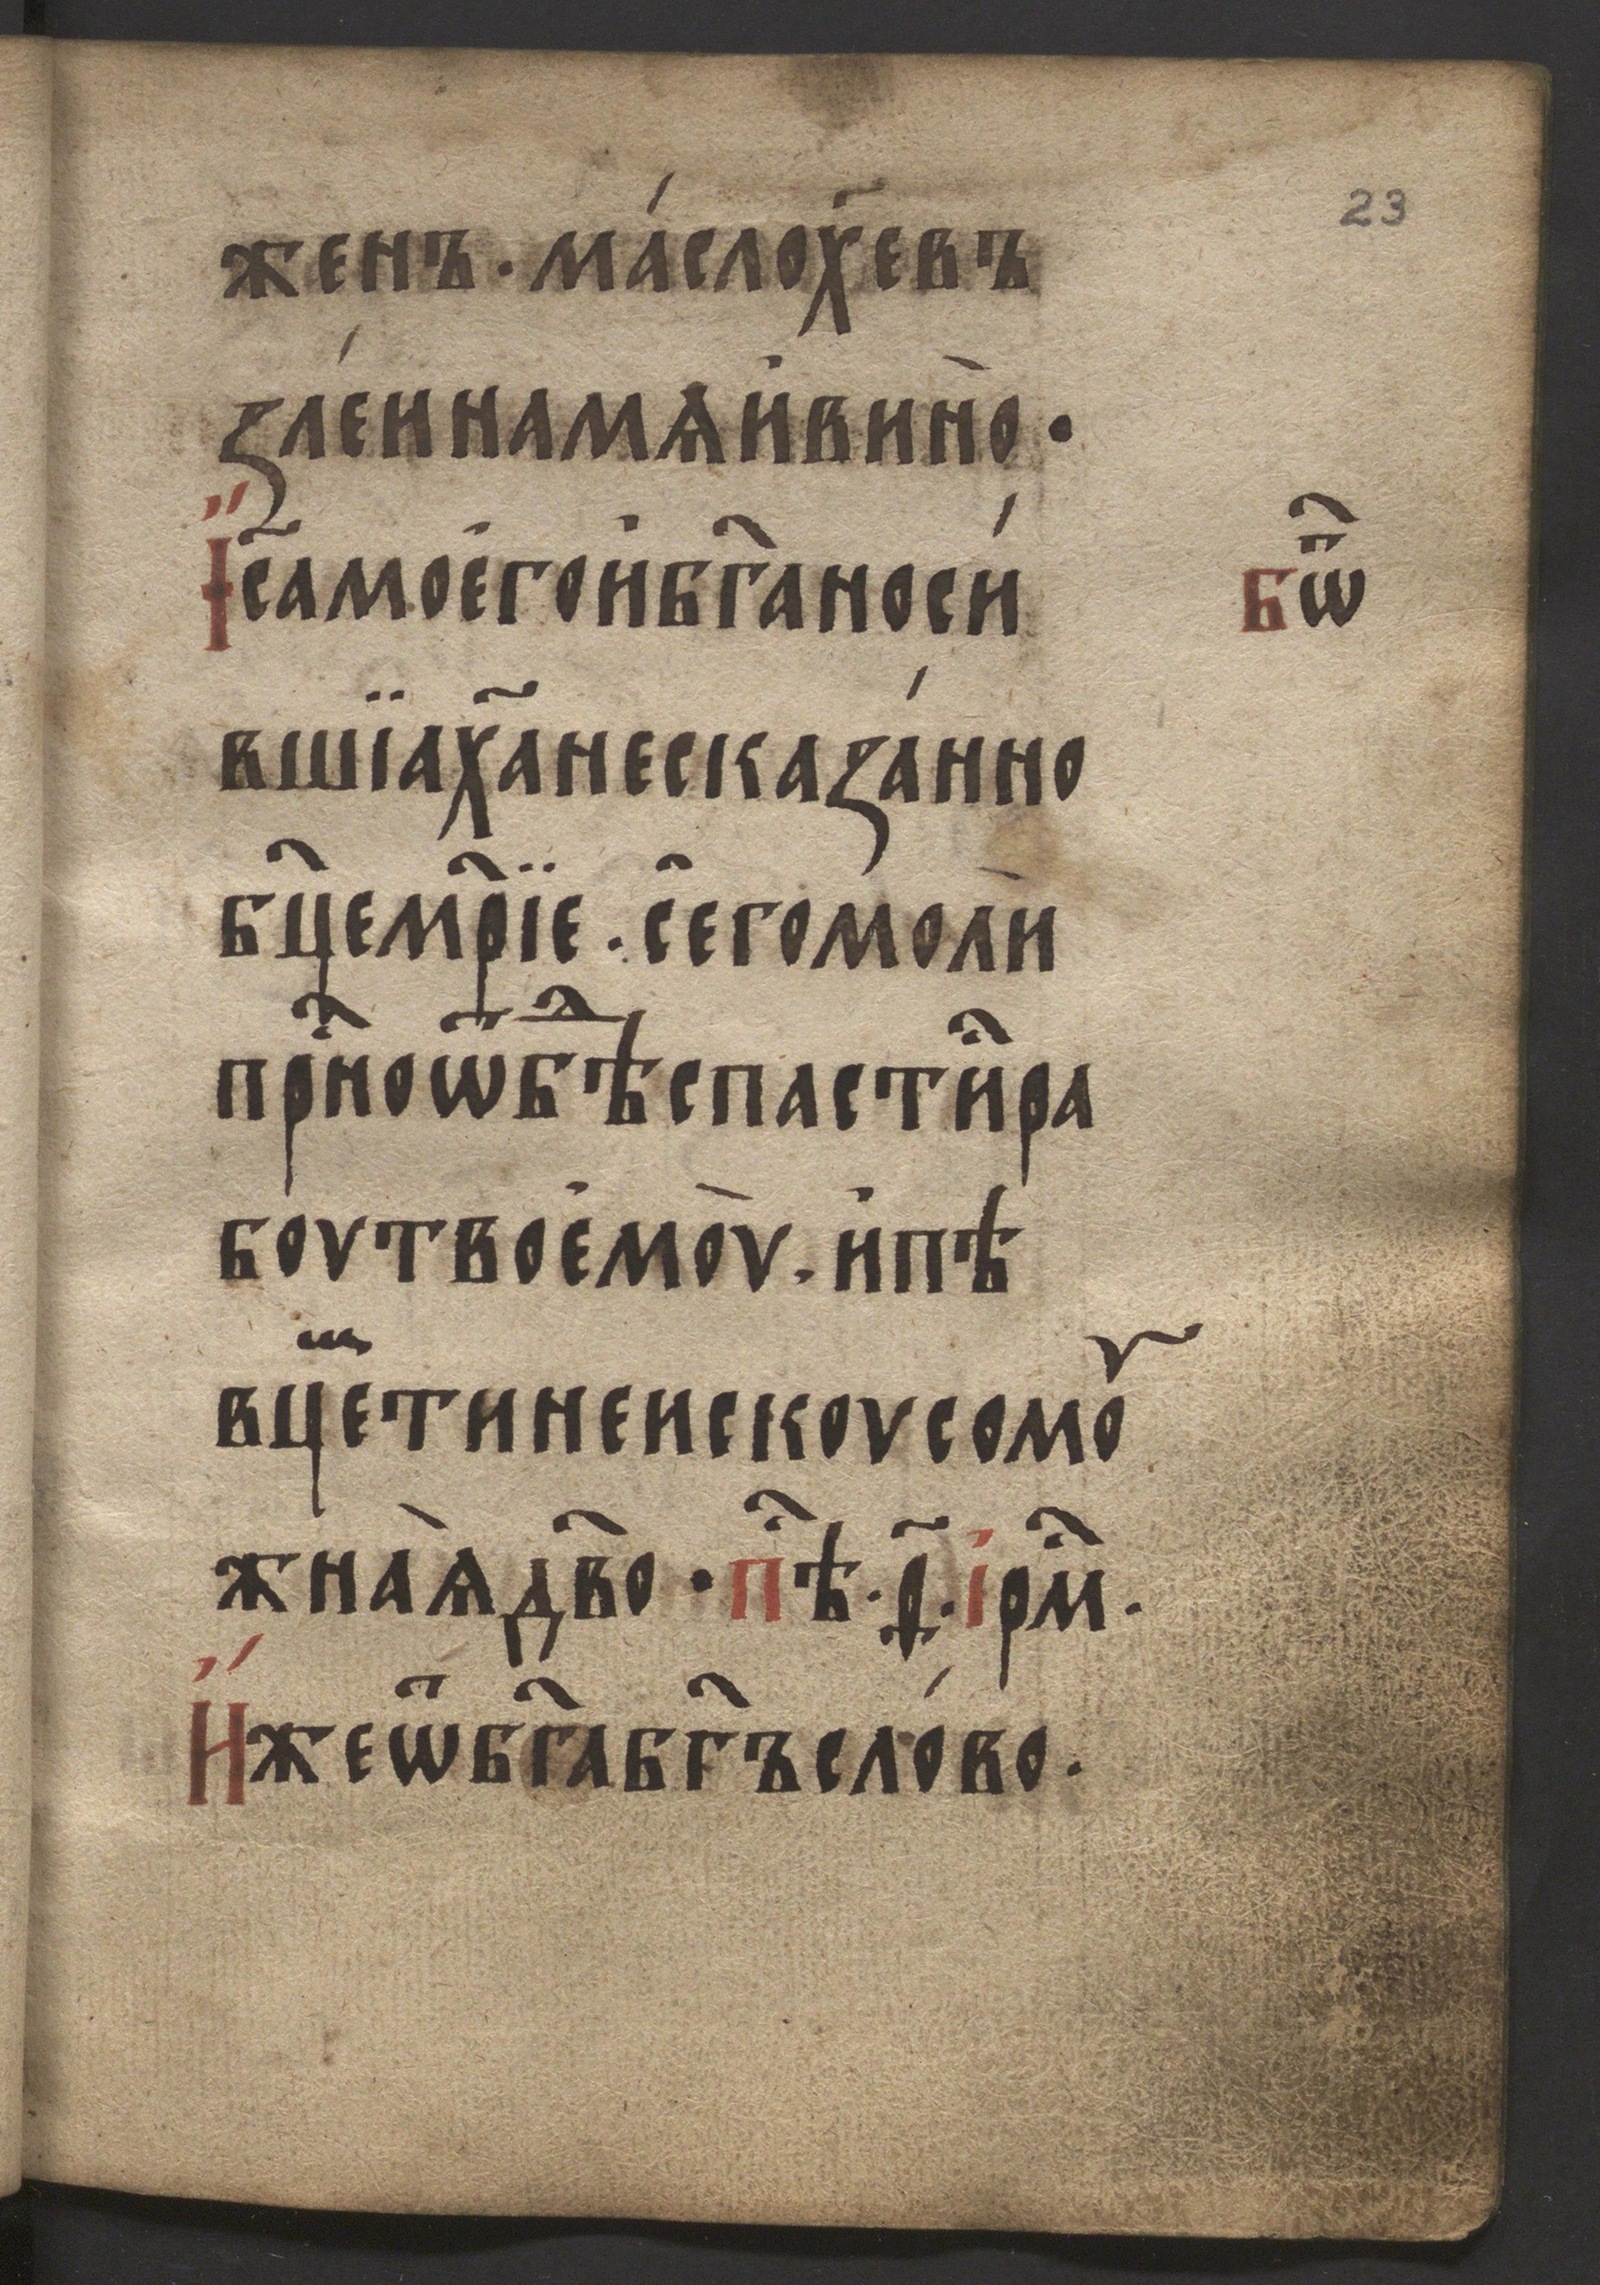 23
женъ · ма́слох҃евъ
ꙁле́инамѧи҆вино̀ ·
І҆с҃амое҆гои҆бг҃аноси́
бѡⷣ҇
вшїах҃анескаꙁа́нно
бц҃емр҃їе · се҆гомолѝ
прⷭ҇ноѿбѣⷣ҇спастиⷭ҇ра
боутвое҆мо̀у · и҆пѣ
вц҃етинеискоусомоꙋ
жна̀ѧдв҃о · пⷭ҇ѣ · ҂ · і҆рⷭ҇м ·
И҆жеѿбг҃абг҃ъсло́во ·